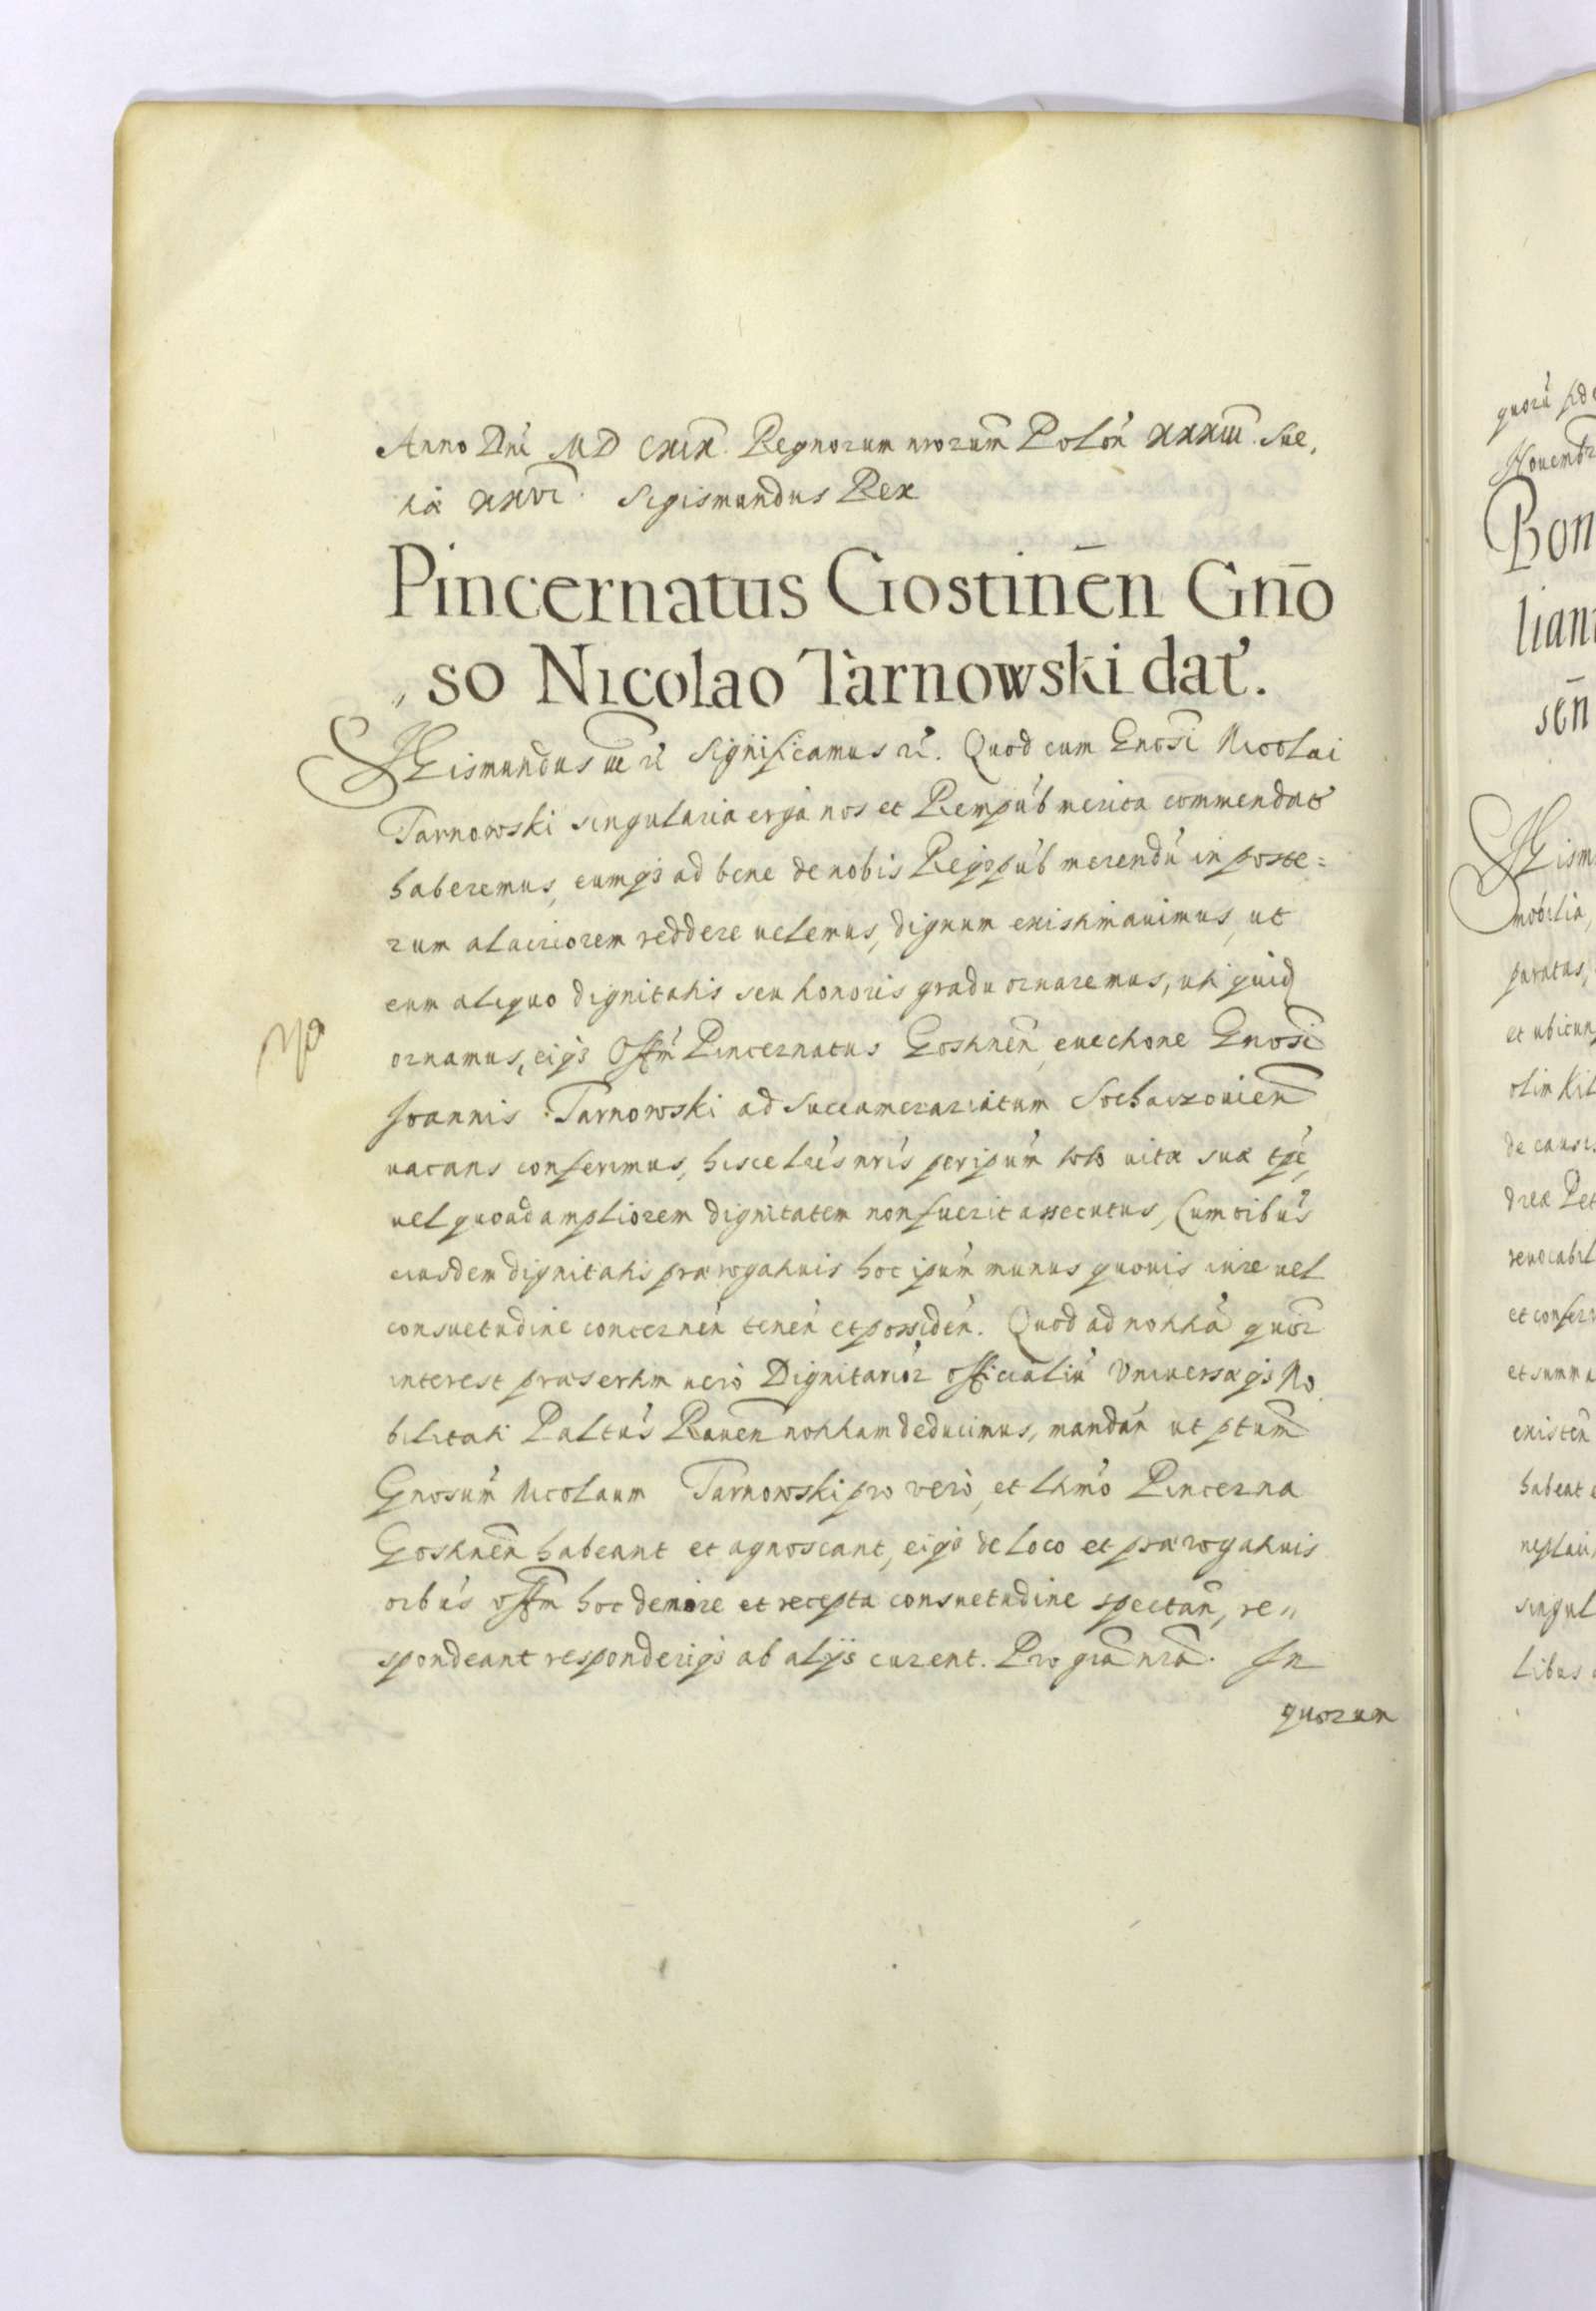 Anno Dni M D CXIX. Regnorum nrorum Polon XXXIII. Sue,
tiæ XXVI. Sigismundus Rex
Pincernatus Gostinēn Gnō
„ so Nicolao Tarnowski dat.
Sigismundus III etc Significamus etc. Quod cum Gnosi Nicolai
Tarnowski singularia erga nos et Rempub merita commendat
haberemus, eumqs ad bene de nobis Reiqspub merendū in poste=
rum alacriorem reddere uelemus, dignum existimauimus, ut
eum aliquo dignitatis seu honoris gradu ornaremus, uti quidē
ornamus, eiqs Offm Pincernatus Gostinēn, euectione Gnosi
Joannis Tarnowski ad Succamerariatum Sochaczouien
uacans conferimus, hisce lris nris per ipsum toto uitæ suæ tpe,
uel quoad ampliorem dignitatem non fuerit assecutus, Cum oibus
eiusdem dignitatis prærogatiuis hoc ipsum munus quouis iure uel
consuetudine concernen tenen et possiden. Quod ad notitiā quor
interest præsertim uerò Dignitarior officialiū Vniuersæqs No
bilitati Paltus Rauen notitiam deducimus, mandan ut ptum
Gnosum Nicolaum Tarnowski pro verò, et ltimo Pincerna
Gostinēn habeant et agnoscant, eiqs de loco et prærogatiuis
oibus offm hoc de iure et recepta consuetudine spectan, re„
spondeant responderiqs ab alijs curent. Pro gra nra. In
quorum
quorū fide
Nouembr
Bon
lian
sēn
Sigism
nobilia,
paratus,
et ubicun
olim Kil
de causis
dreæ Pet
reuocabil
et confer
et summa
existen
habeat e
neplaci
singul
libus